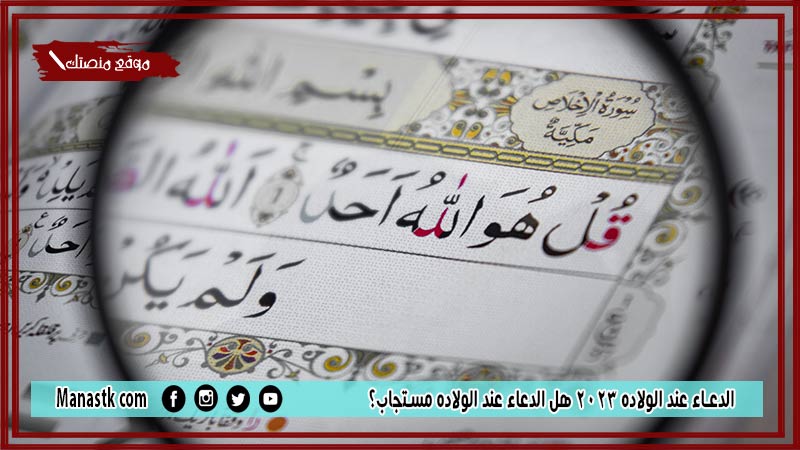 موقع منصتك
بِسْمِ اللّٰهِ
سُورَةُ الْاِخْلَاصِ
مَكِّيَّةٌ
قُلْ هُوَ اللّٰهُ اَحَدٌ ۚ ١ اَللّٰهُ
اَحَدٌ
وَلَمْ يَكُنْ
الدعاء عند الولاده ٢٠٢٣ هل الدعاء عند الولاده مستجاب؟
Manastk com